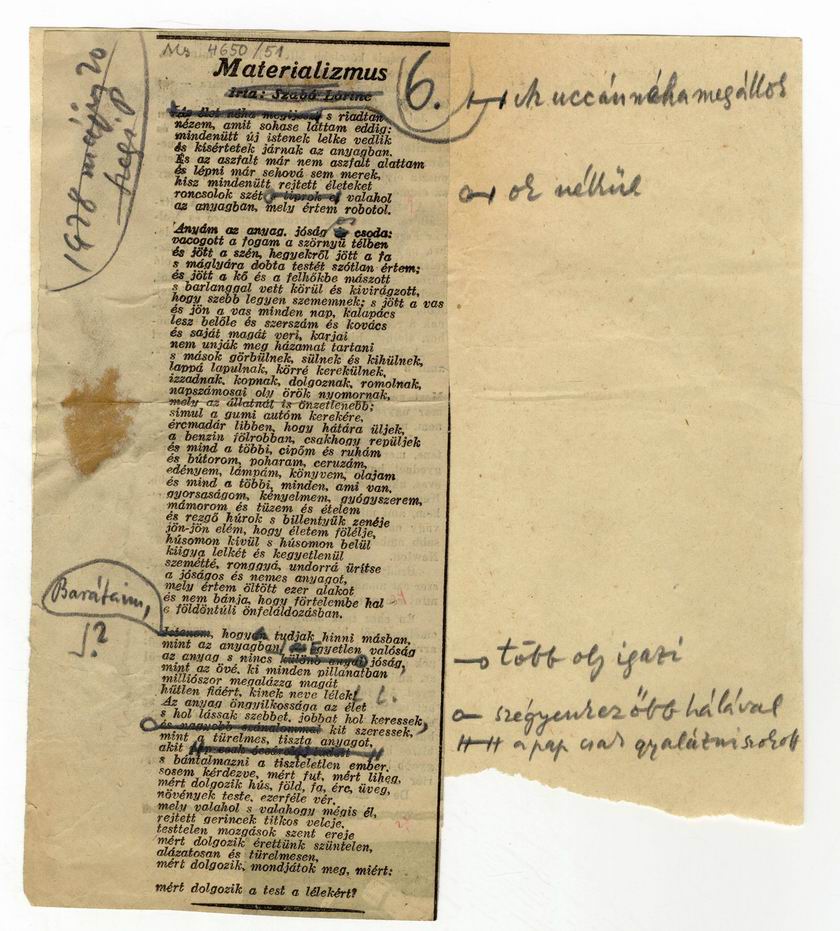 Ms 4650/51
Materializmus
6.
Irta: Szabó Lőrinc
Az élet néha megijeszt s riadtan
nézem, amit sohase láttam eddig:
mindenütt új istenek lelke vedlik
és kísértetek járnak az anyagban.
És az aszfalt már nem aszfalt alattam
és lépni már sehová sem merek,
hisz mindenütt rejtett életeket
roncsolok szét valahol
az anyagban, mely értem robotol.
Anyám az anyag, jóság csoda:
vacogott a fogam a szörnyű télben
és jött a szén, hegyekről jött a fa
s máglyára dobta testét szótlan értem;
és jött a kő és a felhőkbe mászott
s barlanggal vett körül és kivirágzott,
hogy szebb legyen szememnek; s jött a vas
és jön a vas minden nap, kalapács
lesz belőle és szerszám és kovács
és saját magát veri, karjai
nem unják meg házamat tartani
s mások görbülnek, sülnek és kihülnek,
lappá lapulnak, körré kerekülnek,
izzadnak, kopnak, dolgoznak, romolnak,
napszámosai oly örök nyomornak,
mely az állatnál is önzetlenebb;
simul a gumi autóm kerekére,
ércmadár libben, hogy hátára üljek,
a benzin fölrobban, csakhogy repüljek
és mind a többi, cipőm és ruhám
és bútorom, poharam, ceruzám,
edényem, lámpám, könyvem, olajom
és mind a többi, minden, ami van,
gyorsaságom, kényelmem, gyógyszerem,
mámorom és tüzem és ételem
és rezgő húrok s billentyűk zenéje
jön-jön elém, hogy életem fölélje,
húsomon kívül s húsomon belül
kiigya lelkét és kegyetlenül
szemétté, ronggyá, undorrá ürítse
a jóságos és nemes anyagot,
mely értem öltött ezer alakot
és nem bánja, hogy förtelembe hal
e földöntúli önfeláldozásban.
Barátaim,
Istenem, hogy tudjak hinni másban,
mint az anyagban, egyetlen valóság
az anyag s nincs különb anyai jóság,
mint az övé, ki minden pillanatban
milliószor megalázza magát
hűtlen fiáért, kinek neve lélek!
Az anyag öngyilkossága az élet
s hol lássak szebbet, jobbat hol keressek,
és nagyobb szánalommal kit szeressek,
mint a türelmes, tiszta anyagot,
akit
s bántalmazni a tiszteletlen ember,
sosem kérdezve, mért fut, mért liheg,
mért dolgozik hús, föld, fa, érc, üveg,
növények teste, ezerféle vér,
mely valahol s valahogy mégis él,
rejtett gerincek titkos veleje,
testtelen mozgások szent ereje
mért dolgozik érettünk szüntelen,
alázatosan és türelmesen,
mért dolgozik, mondjátok meg, miért:
mért dolgozik a test a lélekért?
Az uccán néha megállok
ok nélkül
több oly igazi
szégyenkezőbb hálával
a pap csak gyalázni szokott